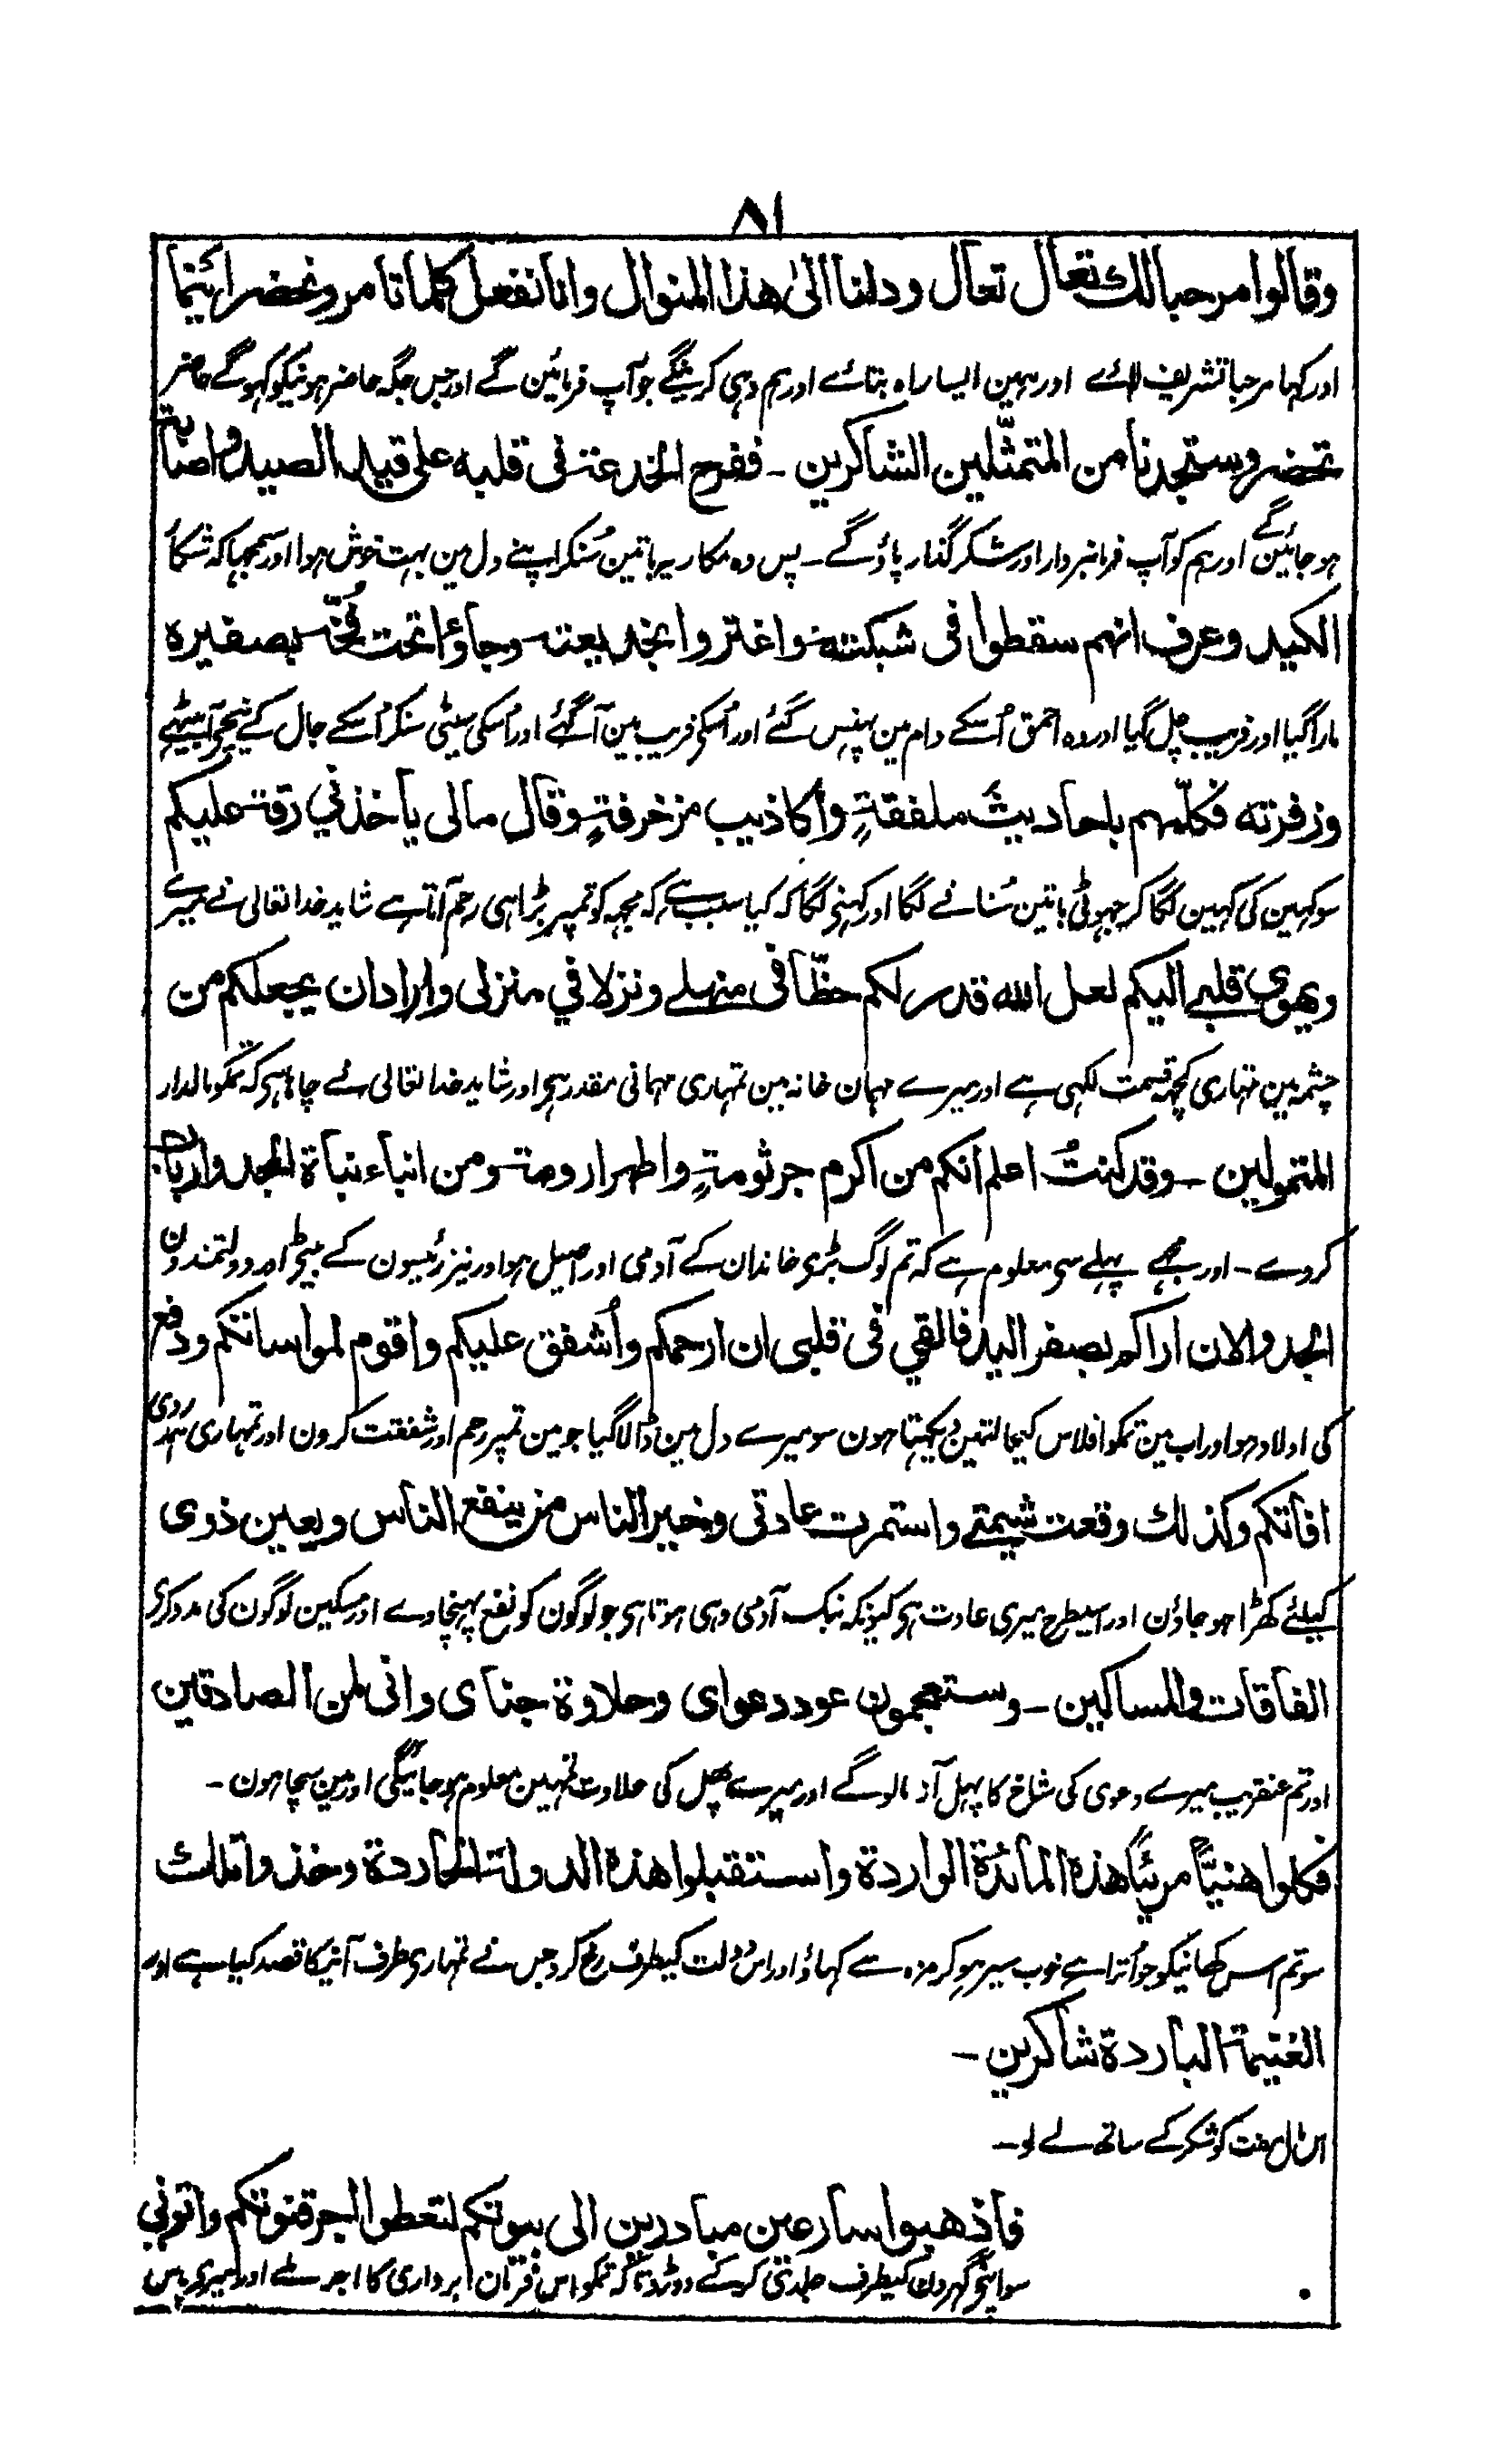 ۸۱
وقالوا مرحبا لك تعال تعال ودلنا الىٰ هذا المنوال وانا نفعل كلما تامر ونحضر اينما
اور کہا مرحبا تشریف لائے اور ہمین ایسا راہ بتائے اور ہم وہی کرینگے جو آپ فرمائین گے اور جس جگہ حاضر ہونیکو کہو گے حاضر
تحضر وستجدنا من المتمثّلين الشاكرين ۔ ففرح الخدعة فى قلبه على قيد الصيد واصابة
ہو جائین گے اور ہم کو آپ فرمانبردار اور شکر گذار پاؤ گے ۔ پس وہ مکار یہ باتین سُنکر اپنے دل مین بہت خوش ہوا اور سمجہا کہ شکار
الكيد وعرف انهم سقطوا فى شبكته واغتروا بخديعته وجاؤا تحت فخّه بصفيره
مارا گیا اور فریب چل گیا اور وہ احمق اُسکے دام مین پہنس گئے اور اُسکی فریب مین آ گئے اور اُسکی سیٹی سنکر اُسکے جال کے نیچے آ بیٹھے
وزفرته فكلّمهم باحاديث ملفقةٍ واكاذيب مزخرفةٍ وقال مالى ياخذني رقة عليكم
سو کہین کی کہین لگا کر جہوٹی باتین سُنانے لگا اور کہنی لگا کہ کیا سبب ہے کہ مجہہ کو تمپر بڑا ہی رحم آتا ہے شاید خدا تعالی نے میرے
ويهوى قلبي اليكم لعل الله قدر لكم حظّا فى منهلے ونزلا في منزلى واراد ان يجعلكم من
چشمہ مین تمہاری کچہہ قسمت لکہی ہے اور میرے مہمان خانہ مین تمہاری مہمانی مقدر ہی اور شاید خدا تعالی نے چاہا ہی کہ تمکو مالدار
المتمولين ۔ وقد كنتُ اعلم انكم من اكرم جرثومةٍ واطهر ارومة ومن ابناء بناة المجد وارباب
کر دے ۔ اور مجھے پہلے سی معلوم ہے کہ تم لوگ بڑی خاندان کے آدمی اور اصیل ہو اور نیز رئیسون کے بیٹے اور دولتمندون
الجد والان اراكم بصفر اليد فالقي فى قلبى ان ارحمكم واُشفق عليكم واقوم لمواساتكم ودفع
کی اولاد ہو اور اب مین تمکو افلاس کیحالتمین دیکہتا ہون سو میرے دل مین ڈالا گیا جو مین تمپر رحم اور شفقت کرون اور تمہاری ہمدردی
افاتكم وكذلك وقعت شيمتے واستمرت عادتى وخير الناس من ينفع الناس ويعين ذوى
کیلئے کھڑا ہو جاؤن اور اسیطرح میری عادت ہی کیونکہ نیک آدمی وہی ہوتا ہی جو لوگون کو نفع پہنچاوے اور مسکین لوگون کی مدد کری
الفاقات والمساكين ۔ وستعجمون عود دعواى وحلاوة جناى وانى لمن الصادقين
اور تم عنقریب میرے دعوی کی شاخ کا پہل آزمالو گے اور میرے پھل کی حلاوت تمہین معلوم ہو جائیگی اور مین سچا ہون ۔
فكلوا هنيًّا مريًا هذه المائدة الواردة واستقبلوا هذه الدولة الحاردة وخذوا تلك
سو تم اس کھانیکو جو اُترا ہے خوب سیر ہو کر مزہ سے کہاؤ اور اس دولت کیطرف رُخ کرو جس نے تمہاری طرف آنیکا قصد کیا ہے اور
الغنيمة الباردة شاكرين ۔
اس مال مفت کو شکر کے ساتھ لے لو ۔
فاذهبوا سارعين مبادرين الى بيوتكم لتعطوا اجر قنوتكم واتوني
سو اپنی گہرون کیطرف جلدی کرکے دوڑو تاکہ تمکو اس فرمان برداری کا اجر ملے اور میری پاس